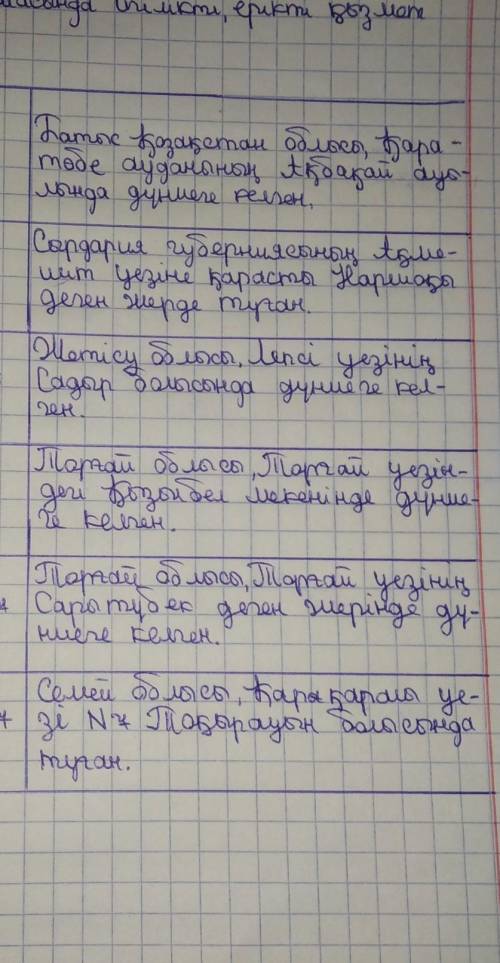 ерікті қызмет
Батыс Қазақстан облысы, Қара-
төбе ауданының Ақбақай ауы-
лында дүниеге келген.
Сырдария губерниясының Ақме-
шіт уезіне қарасты Нармақы
деген жерде туған.
Жетісу облысы, Лепсі уезінің
Садыр болысында дүниеге кел-
ген.
Торғай облысы, Торғай уезін-
дегі Қызынбел мекенінде дүние-
ге келген.
Торғай облысы, Торғай уезінің
Сарытүбек деген жерінде дү-
ниеге келген.
Семей облысы, Қарақаралы уе-
зі N7 Тоқырауын болысында
туған.